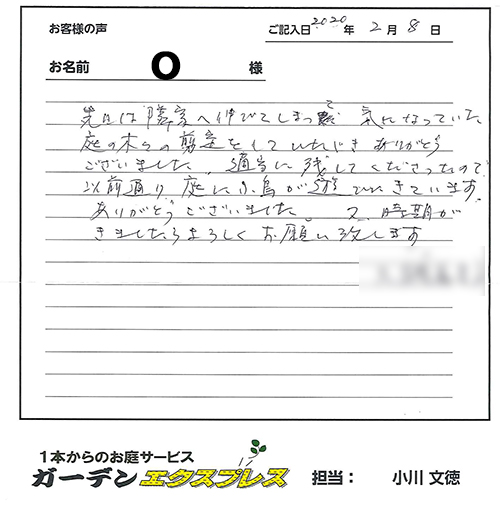 お客様の声
ご記入日 2020 年 2 月 8 日
お名前 O 様
先日は隣家へ伸びてしまって 気になっていた
庭の木々の剪定をして いただき ありがとう
ございました。適当に残してくださったので
以前通り 庭に小鳥が遊びにきています。
ありがとうございました。又、時期が
きましたらよろしく お願い致します
1本からのお庭サービス
ガーデンエクスプレス 担当: 小川 文徳